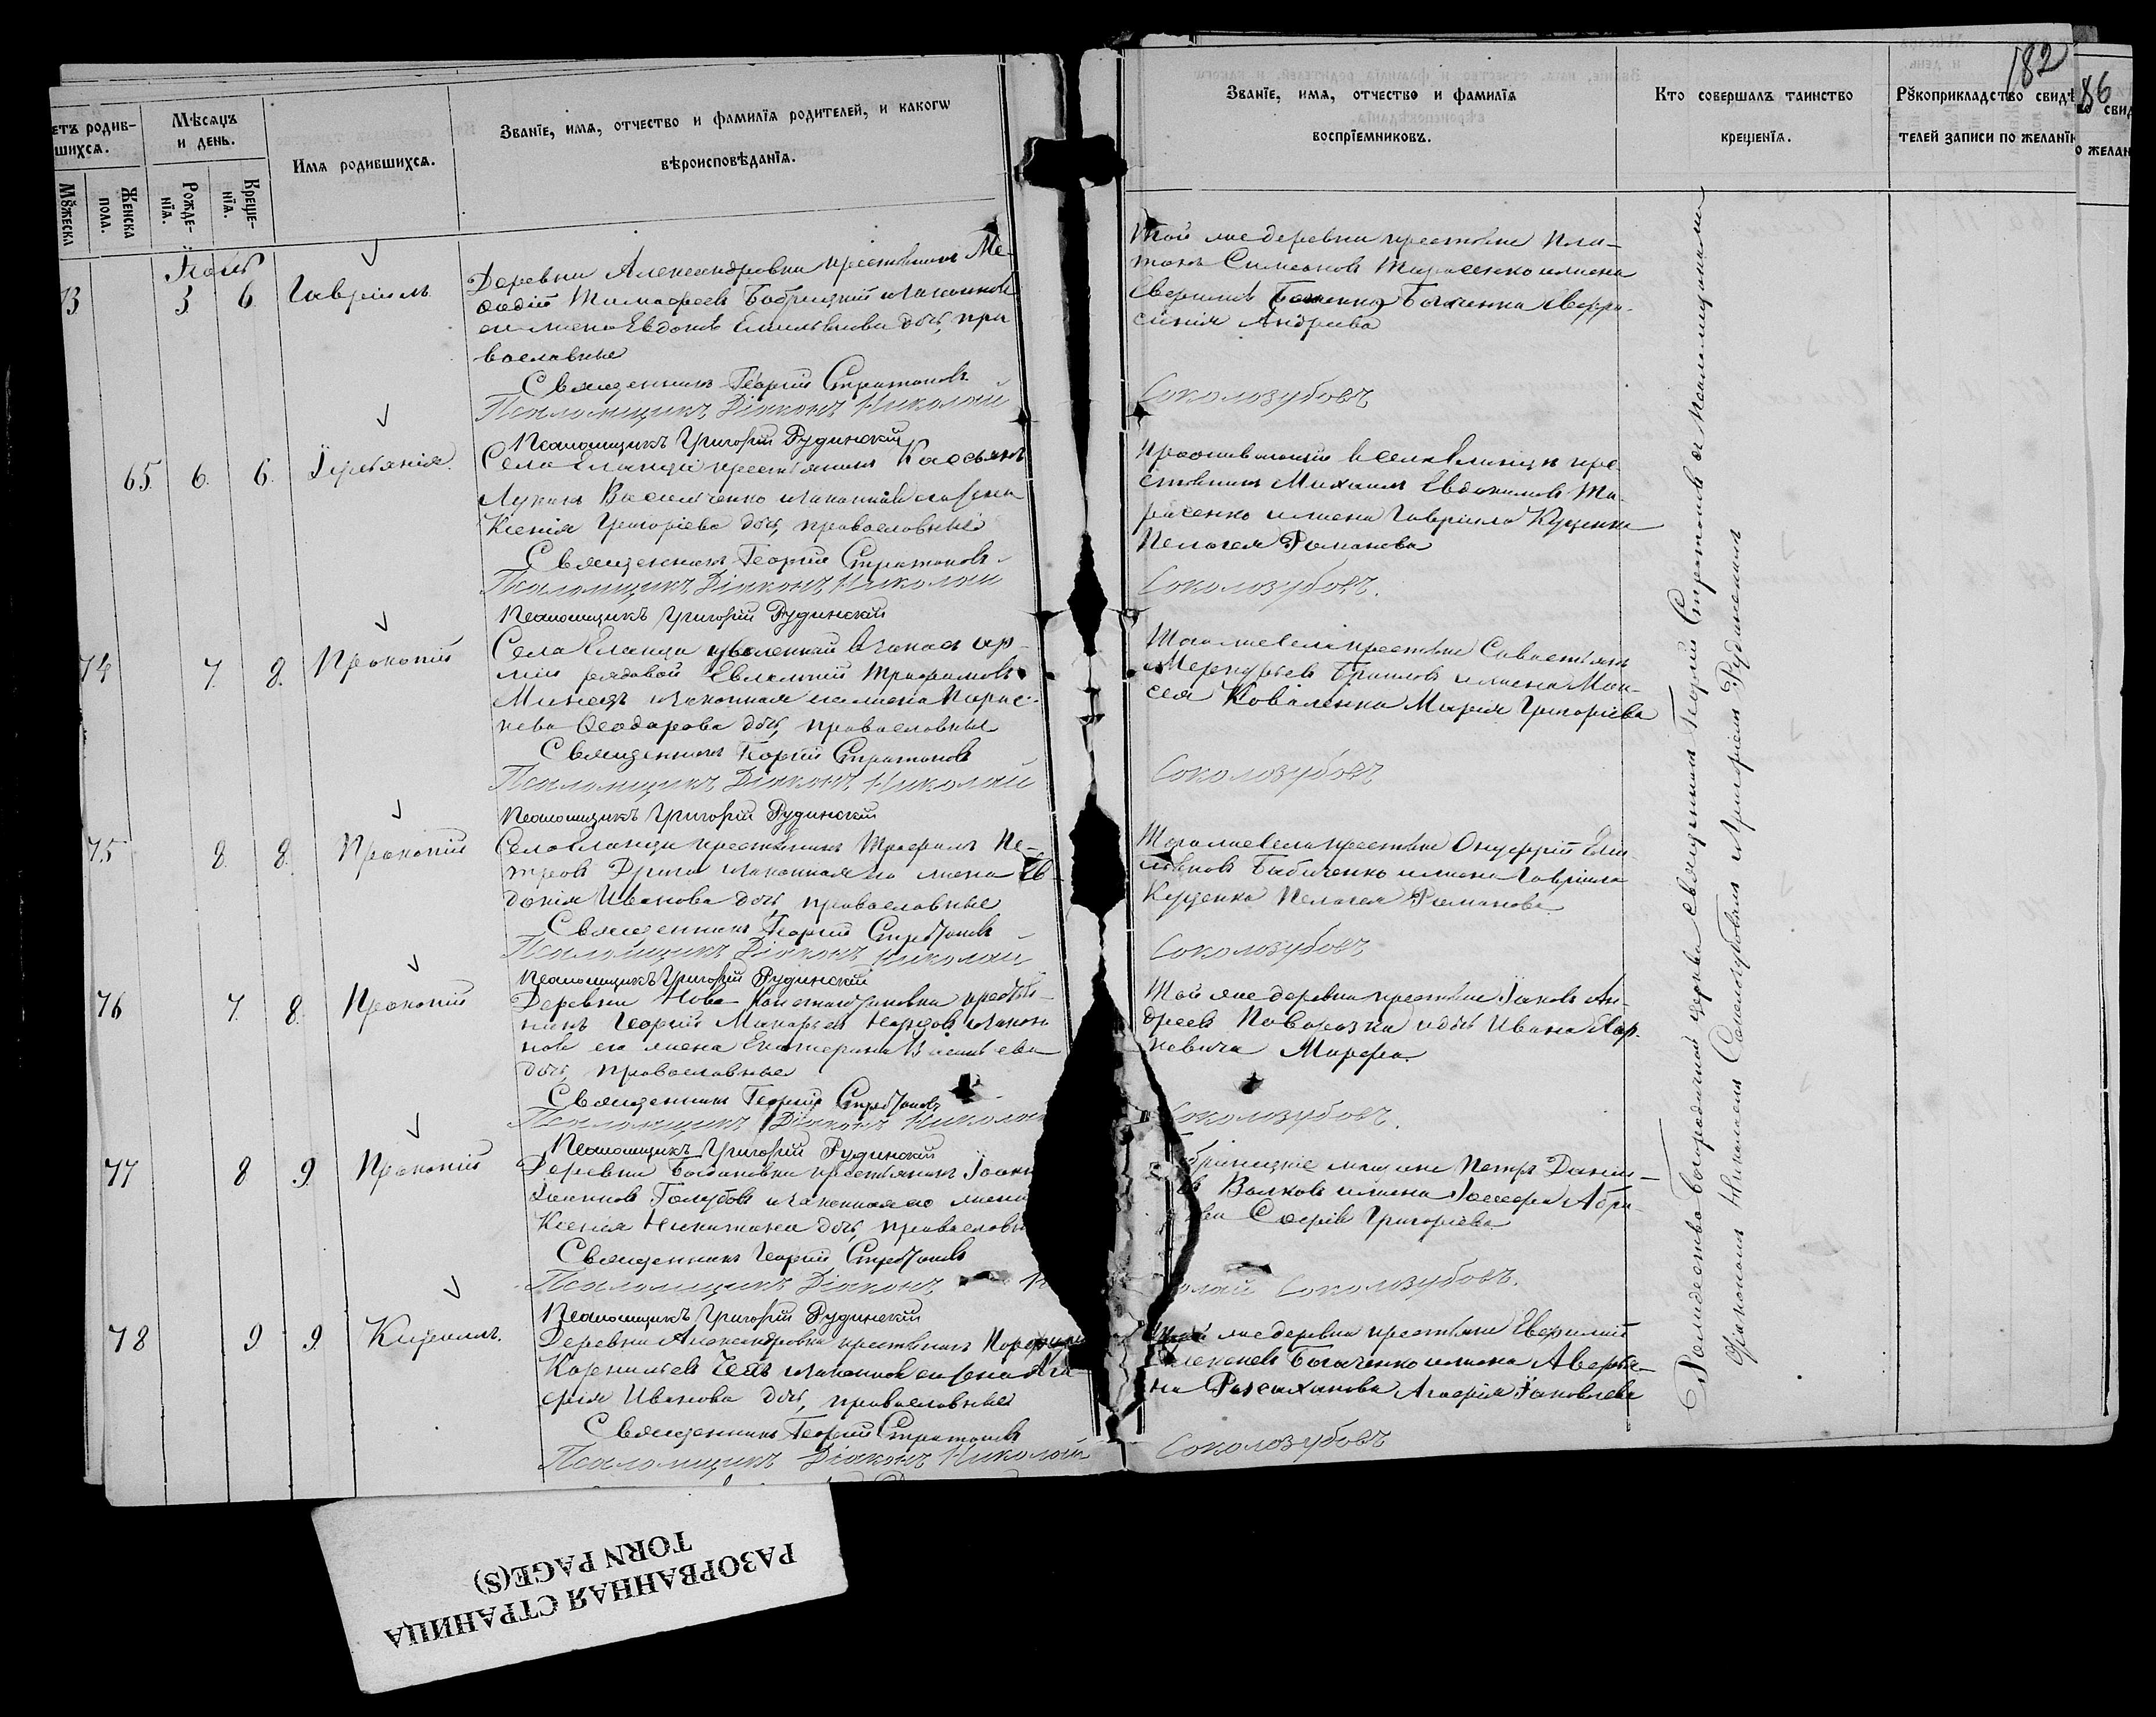 182
86
етъ родив-
шихсѧ.
Мꙋжеска
Женска
пола.
Мѣсѧцъ
и день.
Рожде-
нїѧ.
Креще-
нїѧ.
Имѧ родившихсѧ.
Званїе, имѧ, отчество и фамилїѧ родителей, и какогѡ
вѣроисповѣданїѧ.
Званїе, имѧ, отчество и фамилїѧ
воспрїемниковъ.
Кто совершалъ таинство
крещенїѧ.
Рꙋкоприкладство свидѣ
телей записи по желанїю
свид
о желан
Іюль
3 6 Гавріилъ
Деревни Александровки крестьянинъ Ме-
ѳодій Тимофеевъ Бобрицкій и законная
его жена Евдокія Емельянова дочь, пра
вославные
Священникъ Георгій Стратоновъ
Псаломщикъ Діаконъ Николай
Псаломщикъ Григорій Рудинскій
Той же деревни крестьяне Пла-
тонъ Симеоновъ Тарасенко и жена
Богаченка Евфро-
синія Андреева
Соколозубовъ
65. 6. 6. Іуліанія.
Села Еланца крестьянинъ Кассьянъ
Лукинъ Василченко и законная его жена
Ксенія Григоріева дочь, православные
Священникъ Георгій Стратоновъ
Псаломщикъ Діаконъ Николай
Псаломщикъ Григорій Рудинскій
Проживающій въ селе Еланцѣ кре
стьянинъ Михаилъ Евдокимовъ Та-
расенко и жена Гавріила Куценка
Пелагея Романова
Соколозубовъ.
74 7. 8. Прокопій
Села Еланца уволенный въ запасъ ар-
міи рядовой Евлампій Трофимовъ
и законная его жена Парас-
кева Ѳеодорова дочь, православные
Священникъ Георгій Стратоновъ
Псаломщикъ Діаконъ Николай
Псаломщикъ Григорій Рудинскій
Того же села крестьяне Савастьянъ
Меркурьевъ и жена Мои-
сея Коваленка Марія Григоріева
Соколозубовъ
75 8. 8. Прокопій
Села Еланца крестьянинъ Трофимъ Пе-
тровъ и законная его жена Ев-
докія Иванова дочь, православные
Священникъ Георгій Стратоновъ
Псаломщикъ Діаконъ Николай
Псаломщикъ Григорій Рудинскій
Того же села крестьяне Онуфрій Еми-
льяновъ Бабиченко и жена Гавріила
Куценка Пелагея Романова
Соколозубовъ
76 7. 8. Прокопій
Деревни Ново-Константиновки крестья-
нинъ Георгій Макарьевъ и закон
ная его жена Екатерина Васильева
дочь, православные
Священникъ Георгій Стратоновъ
Псаломщикъ Діаконъ Николай
Псаломщикъ Григорій Рудинскій
Той же деревни крестьяне Іаковъ Ан-
дреевъ Поворозка и дочь Ивана Кар-
невича Марфа.
Соколозубовъ.
77 8 9 Прокопій
Деревни Богдановки крестьянинъ
Голубовъ и законная его жена
Ксенія Никитина дочь, православн
Священникъ Георгій Стратоновъ
Псаломщикъ Діаконъ
Псаломщикъ Григорій Рудинскій
мещане Петръ Данил-
Волковъ и жена Іосифа Абра-
Софія Григоріева
олай Соколозубовъ.
78 9 9. Кириллъ.
Деревни Александровки крестьянинъ
Корнильевъ и законная его жена Ага-
фія Иванова дочь, православные
Священникъ Георгій Стратоновъ
Псаломщикъ Діаконъ Николай
же деревни крестьяне Евфимій
Алексеевъ Богаченко и жена Аверья-
на Агафія Іаковлева
Соколозубовъ
Рождество-Богородичной церкви священникъ Георгій Стратоновъ съ псаломщиками
діакономъ Николаемъ Соколозубовымъ и Григоріемъ Рудинскимъ
РАЗОРВАННАЯ СТРАНИЦА
TORN PAGE(S)